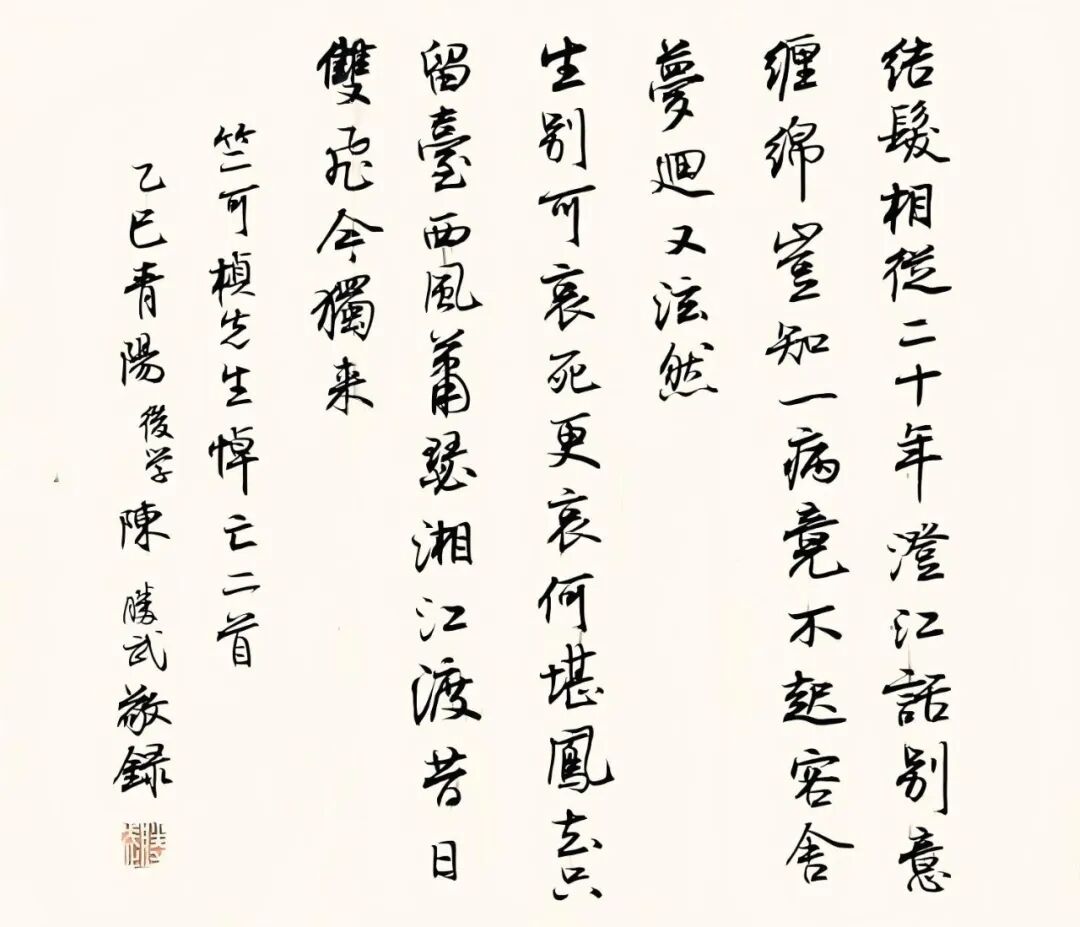 结髮相從二十年澄江話别意
缠绵豈知一病竟不起客舍
夢迴又泫然
生别可哀死更哀何堪鳳去只
留臺西風蕭瑟湘江渡昔日
雙飛今獨来
竺可楨先生悼亡二首
乙巳青陽後学陳勝武敬録